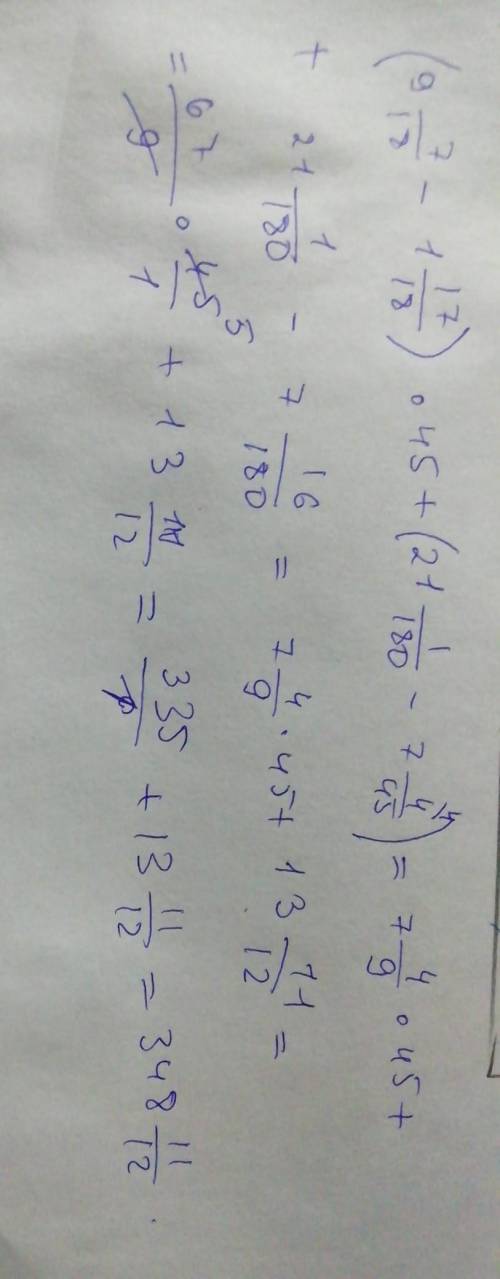 (9 7/18 - 1 17/18) · 45 + (21 1/180 - 7 4/45) = 7 4/9 · 45 +
+ 21 1/180 - 7 16/180 = 7 4/9 · 45 + 13 11/12 =
= 67/9 · 45/1 5 + 13 11/12 = 335/1 + 13 11/12 = 348 11/12.